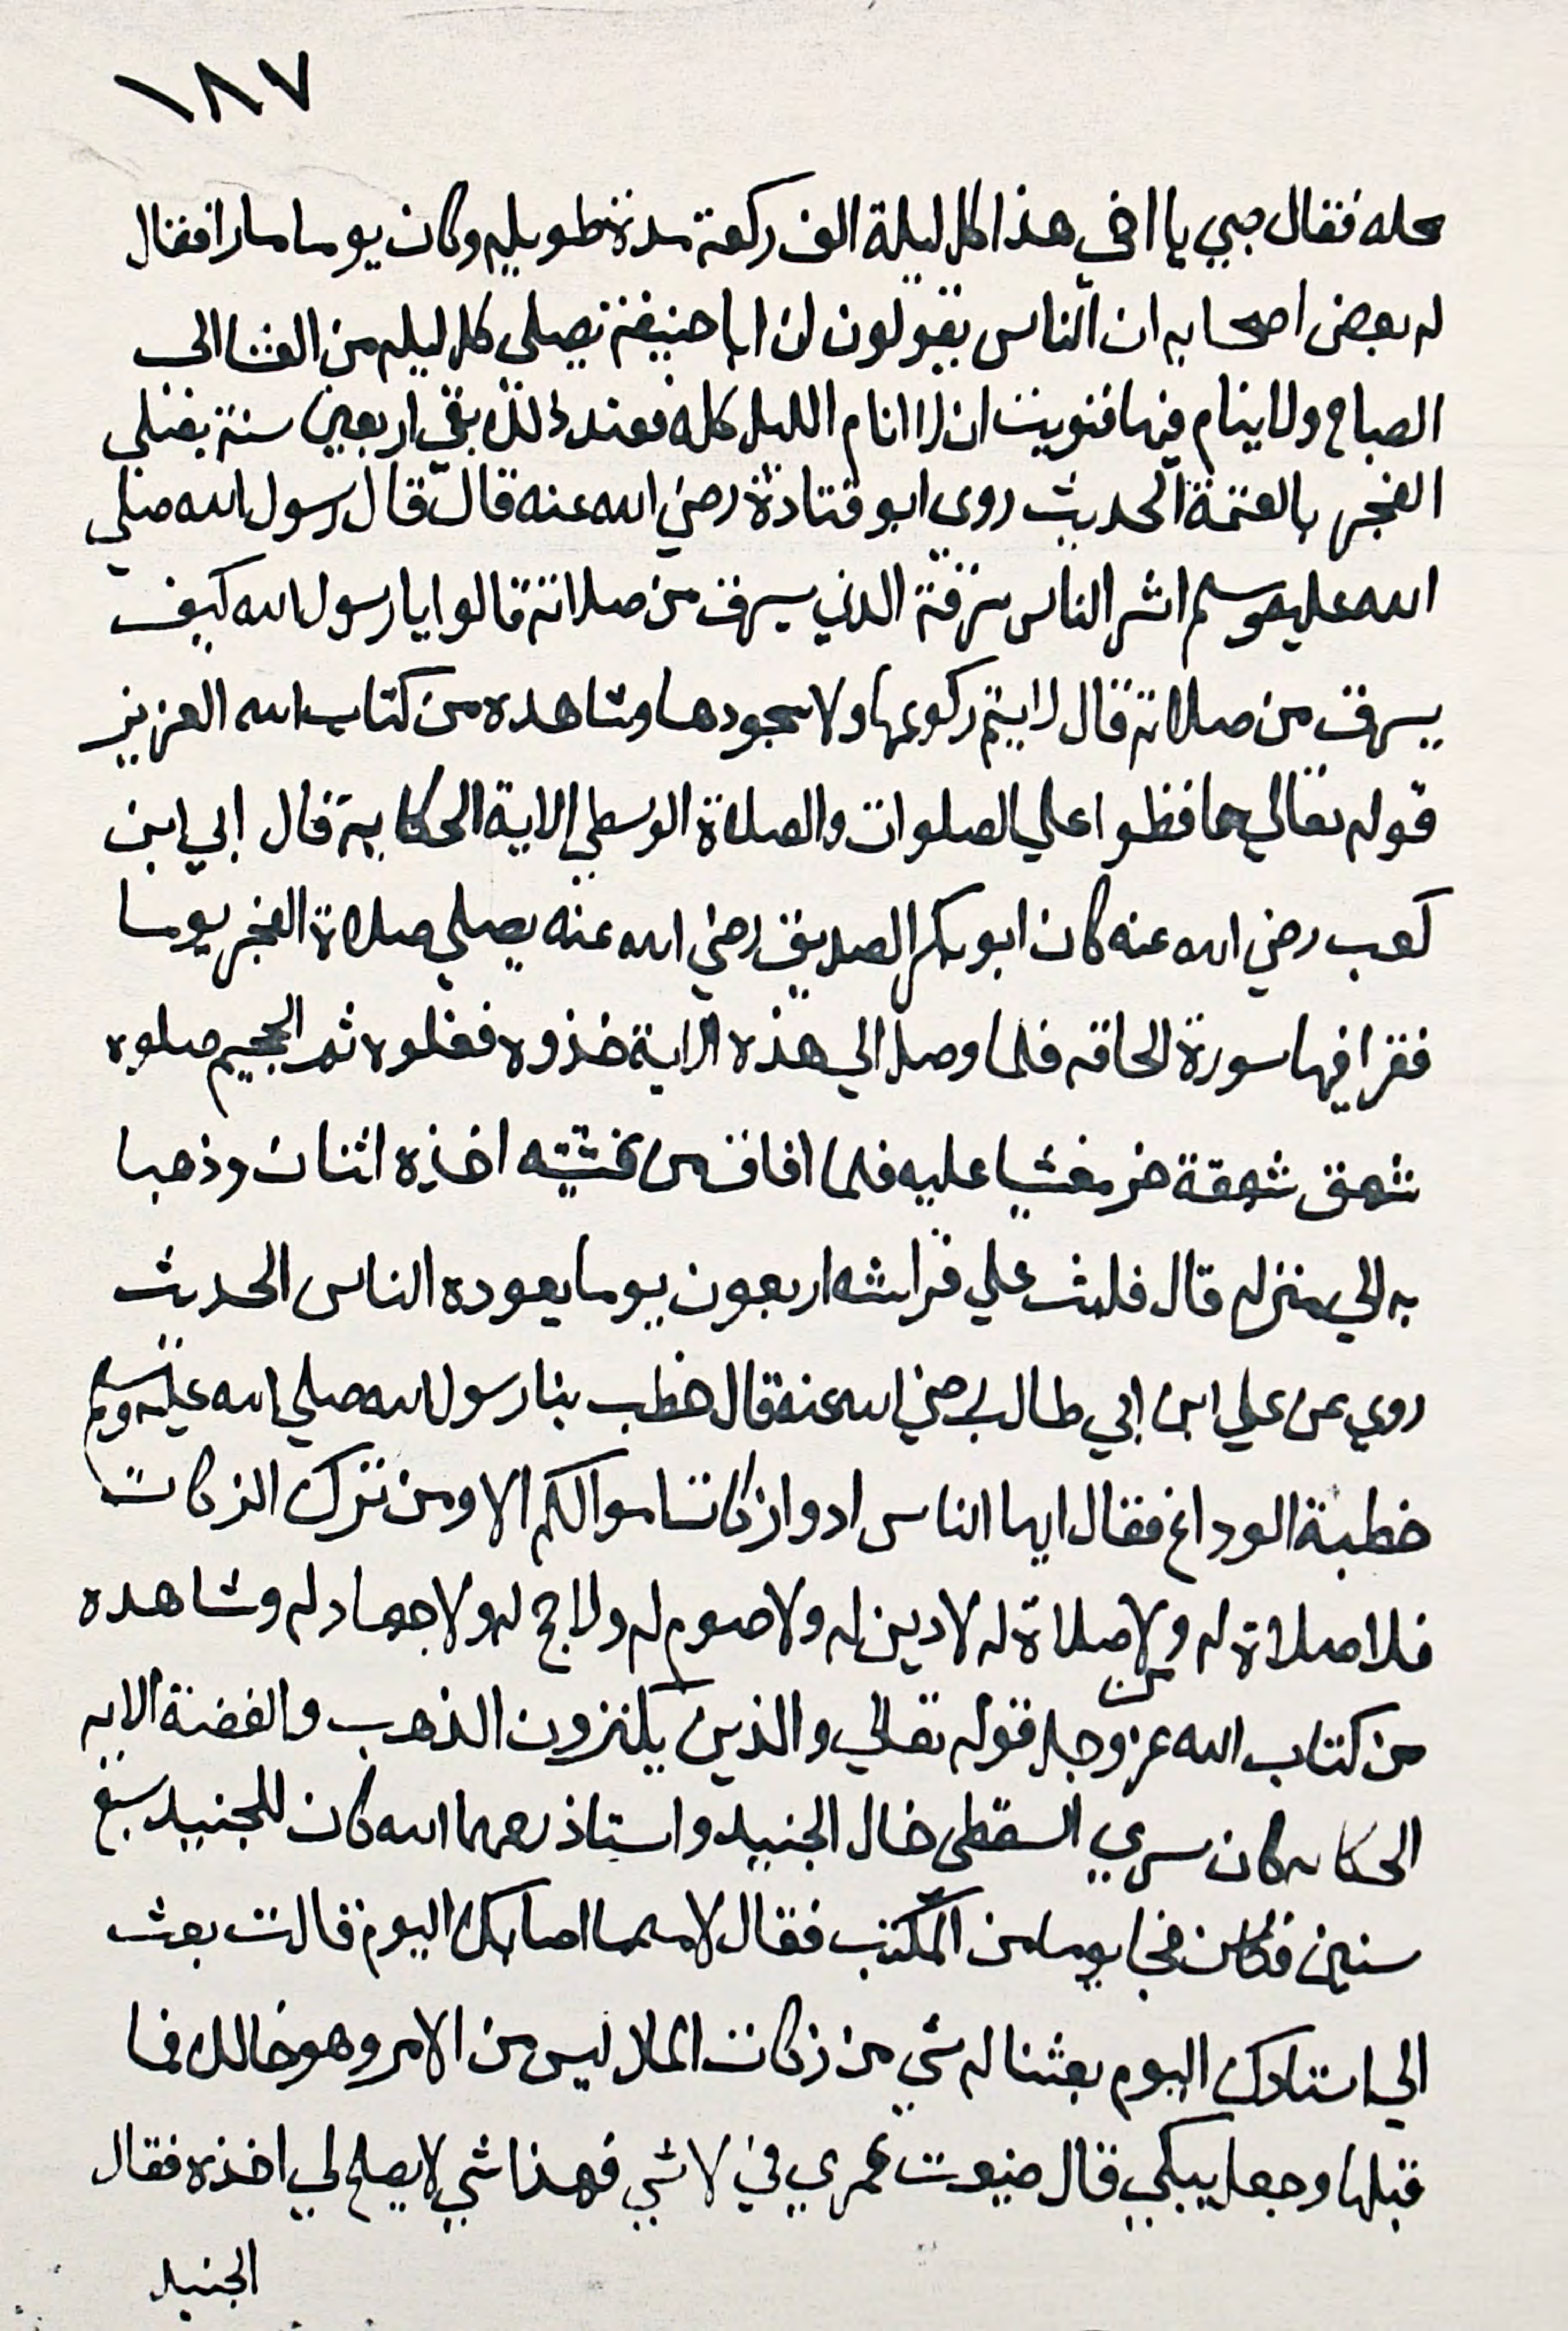 ١٨٧
محله فقال صبي يا اخي هذا كل ليلة الف ركعة مدة طويله وكان يوما مارا فقال
له بعض اصحابه ان الناس يقولون ان ابا حنيفة يصلي كل ليله من العشا الى
الصباح ولا ينام فيها فنويت ان لا انام الليل كله فعند ذلك بقي اربعين سنة يصلي
الفجر بالعتمة الحديث روى ابو قتادة رضي الله عنه قال قال رسول الله صلي
الله عليه وسلم اشر الناس سرقة الذي يسرق من صلاته قالوا يا رسول الله كيف
يسرق من صلاته قال لا يتم ركوعها ولا سجودها وشاهده من كتاب الله العزيز
قوله تعالي حافظوا علي الصلوات والصلاة الوسطي الاية الحكاية قال ابي ابن
كعب رضي الله عنه كان ابو بكر الصديق رضي الله عنه يصلي صلاة الفجر يوما
فقرا فيها سورة الحاقه فلما وصل الي هذه الاية خذوه فغلوه ثم الجحيم صلوه
شهق شهقة خر مغشيا عليه فلما افاق من غشيته اخذه اثنان وذهبا
به الي منزله قال فلبث علي فراشه اربعون يوما يعوده الناس الحديث
روي عن علي ابن ابي طالب رضي الله عنه قال خطب بنا رسول الله صلي الله عليه وسلم
خطبة الوداع فقال ايها الناس ادوا زكات اموالكم الا ومن ترك الزكات
فلا صلاة له ومن لا صلاة له لا دين له ولا صوم له ولا حج له ولا جهاد له وشاهده
من كتاب الله عز وجل قوله تعالي والذين يكنزون الذهب والفضة الايه
الحكايه كان سري السقطي خال الجنيد واستاذ رحمهما الله كان للجنيد سبع
سنين فجا يوما من المكتب فقال لامه ما اصابك اليوم قالت بعث
الي استادك اليوم بعثنا له شي من زكات المال ليس من الامر وهو خالك فما
قبلها وجعل يبكي قال ضيعت عمري في لا شي فهذا شي لا يصلح لي اخذه فقال
الجنيد